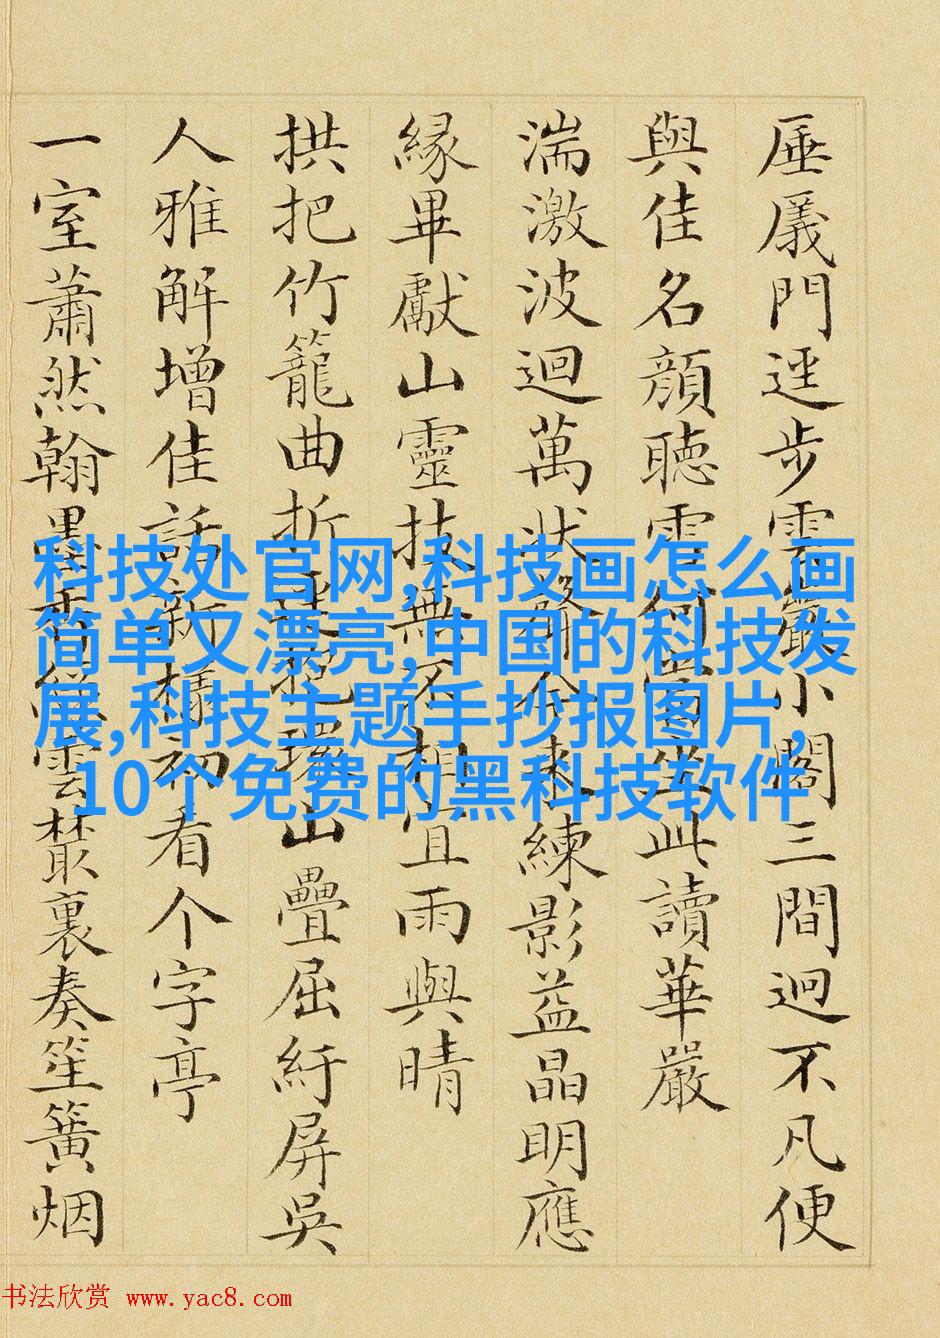 厜㕒門逕步雲巖小閣三間迥不凡便
與佳名顏聽雪何坐此讀華嚴
湍激波迴萬狀今來練影益晶明應
緣畢獻山靈技無不相宜雨與晴
拱把竹籠曲折山疊屈紆屏吳
人雅解增佳話新構初看个字亭
一室蕭然翰墨香雲叢裏奏笙簧烟
科技处官网,科技画怎么画
简单又漂亮,中国的科技发
展,科技主题手抄报图片,
10个免费的黑科技软件
书法欣赏 www.yac8.com